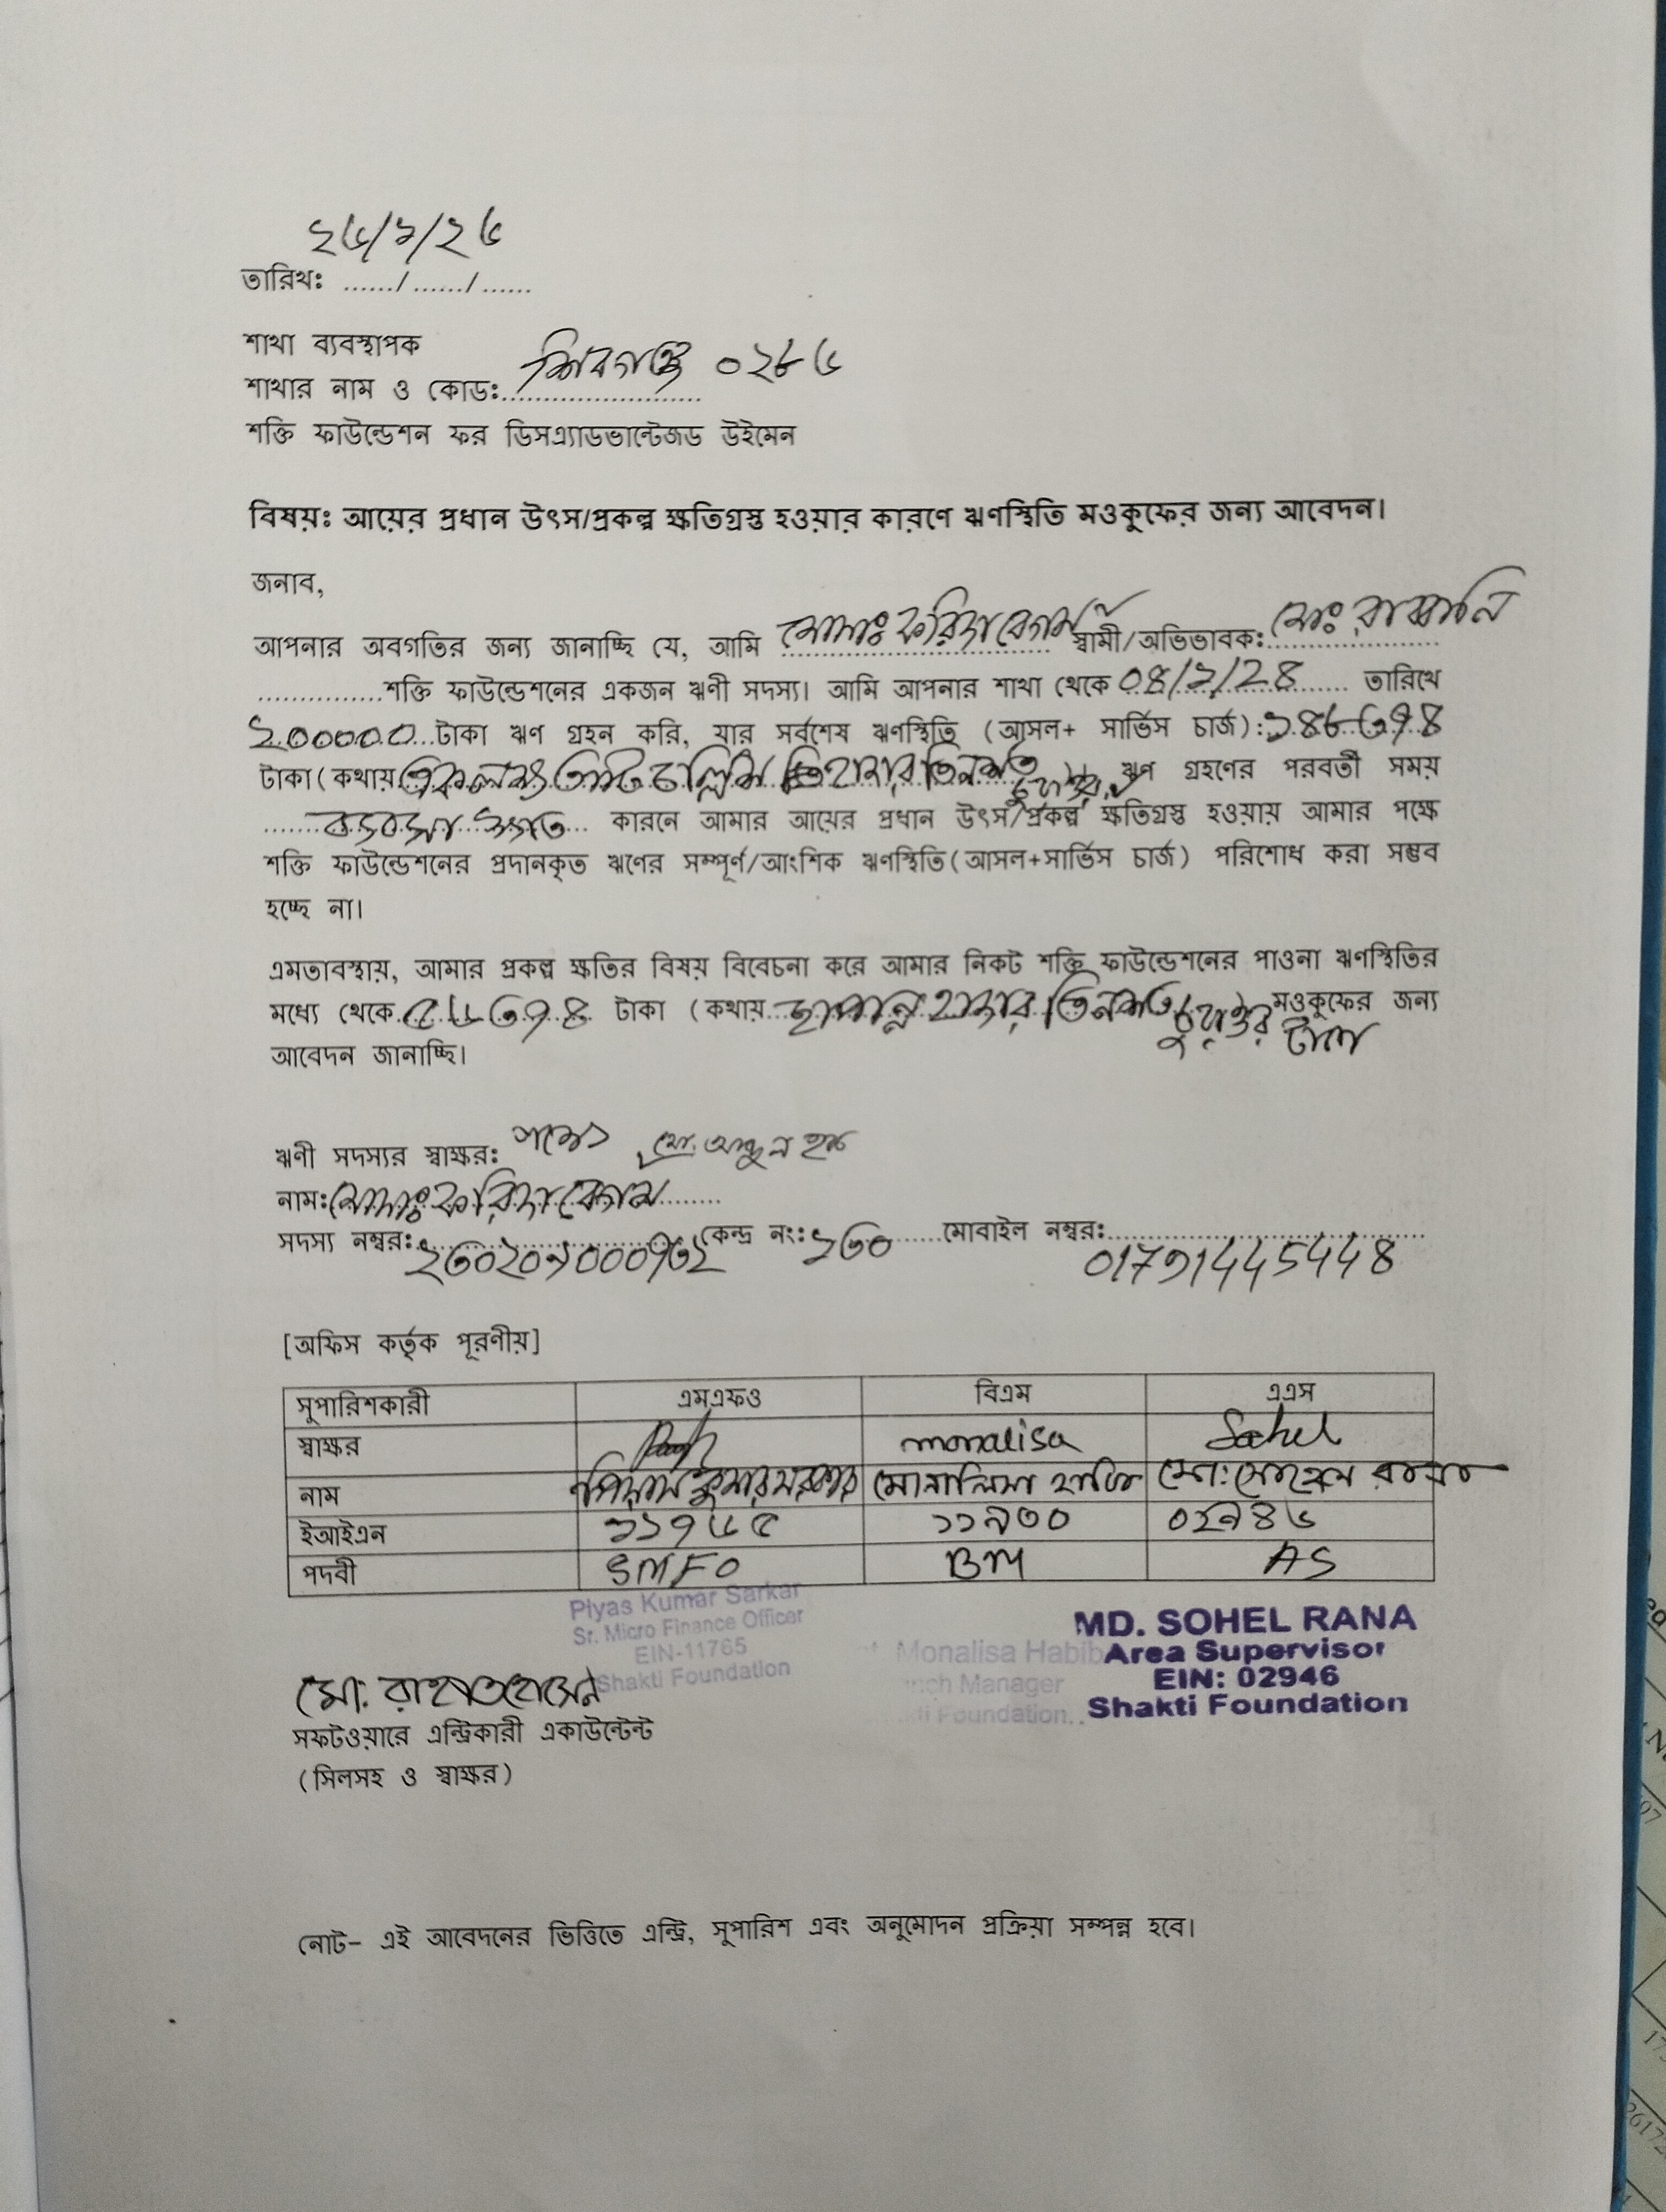 ২৬/১/২৬
তারিখঃ ....../....../......
শাখা ব্যবস্থাপক
শাখার নাম ও কোডঃ শিবগঞ্জ ০২৮৬
শক্তি ফাউন্ডেশন ফর ডিসএ্যাডভান্টেজড উইমেন
বিষয়ঃ আয়ের প্রধান উৎস/প্রকল্প ক্ষতিগ্রস্ত হওয়ার কারণে ঋণস্থিতি মওকুফের জন্য আবেদন।
জনাব,
আপনার অবগতির জন্য জানাচ্ছি যে, আমি মোসাঃ ফরিদা বেগম স্বামী/অভিভাবক: মোঃ
শক্তি ফাউন্ডেশনের একজন ঋণী সদস্য। আমি আপনার শাখা থেকে ০৪/২/২৪ তারিখে
২০০০০০ টাকা ঋণ গ্রহন করি, যার সর্বশেষ ঋণস্থিতি (আসল+ সার্ভিস চার্জ): ১৪৮৩৭৪
টাকা(কথায় একলক্ষ আটচল্লিশ হাজার তিনশত চুয়াত্তর ঋণ গ্রহণের পরবর্তী সময়
ব্যবসা কারনে আমার আয়ের প্রধান উৎস/প্রকল্প ক্ষতিগ্রস্ত হওয়ায় আমার পক্ষে
শক্তি ফাউন্ডেশনের প্রদানকৃত ঋণের সম্পূর্ণ/আংশিক ঋণস্থিতি(আসল+সার্ভিস চার্জ) পরিশোধ করা সম্ভব
হচ্ছে না।
এমতাবস্থায়, আমার প্রকল্প ক্ষতির বিষয় বিবেচনা করে আমার নিকট শক্তি ফাউন্ডেশনের পাওনা ঋণস্থিতির
মধ্যে থেকে ৫৬৩৭৪ টাকা (কথায় ছাপান্ন হাজার তিনশত চুয়াত্তর টাকা মওকুফের জন্য
আবেদন জানাচ্ছি।
ঋণী সদস্যর স্বাক্ষর: মো: আব্দুল
নাম: মোসাঃ ফরিদা বেগম
সদস্য নম্বর: কেন্দ্র নং: ১৩০ মোবাইল নম্বর:
01791445448
[অফিস কর্তৃক পূরণীয়]
সুপারিশকারী এমএফও বিএম এএস
স্বাক্ষর monalisa Sohel
নাম পিয়াস কুমার সরকার মোনালিসা হাবিব মো: সোহেল রানা
ইআইএন ১১৭৬৫ ১১৯৩০ ০২৯৪৬
পদবী SMFO BM AS
Piyas Kumar Sarkar
Sr. Micro Finance Officer
EIN-11765
Shakti Foundation
Monalisa Habib
Manager
Foundation
MD. SOHEL RANA
Area Supervisor
EIN: 02946
Shakti Foundation
মো: রাহাত হোসেন
সফটওয়ারে এন্ট্রিকারী একাউন্টেন্ট
(সিলসহ ও স্বাক্ষর)
নোট- এই আবেদনের ভিত্তিতে এন্ট্রি, সুপারিশ এবং অনুমোদন প্রক্রিয়া সম্পন্ন হবে।